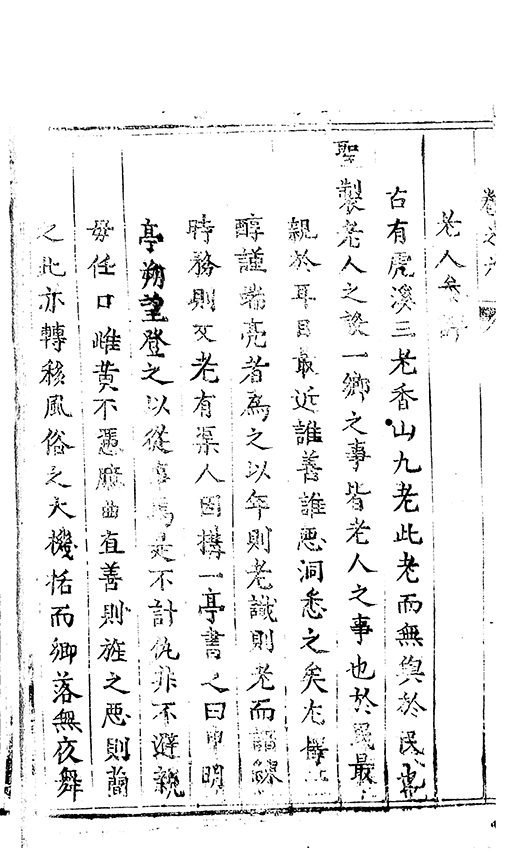 卷之六
老人
古有虎溪三老香山九老此老而無與於民也
聖製老人之設一鄉之事皆老人之事也於民最
親於耳目最近誰善誰惡洞悉之矣尤
醇謹端亮者為之以年則老識則老而諳練
時務則又老有渠人固搆一亭書之曰申明
亭朔望登之以從事焉是不計仇非不避親
毋任口雌黃不憑曲直善則旌之惡則
之此亦轉移風俗之大機括而鄉落無夜舞